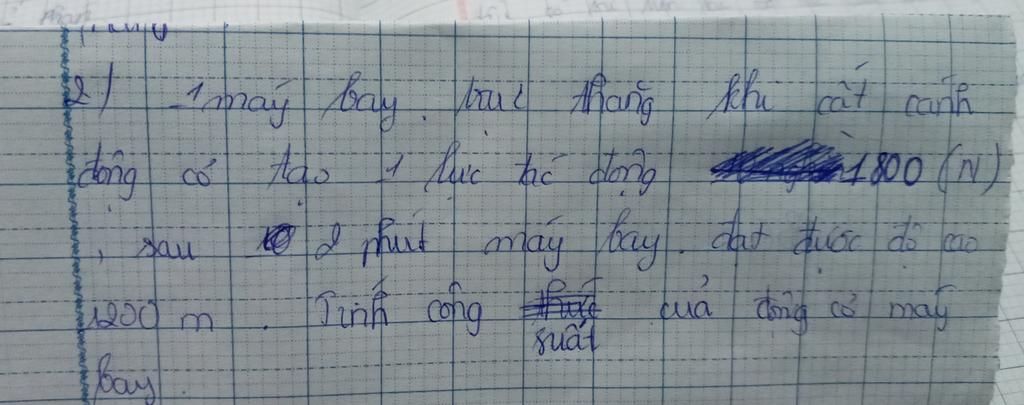 2) 1 máy bay trực thăng khi cất cánh
động cơ tạo 1 lực tác động 1800 (N)
, sau 2 phút máy bay đạt được độ cao
1200 m. Tính công suất của động cơ máy
bay.